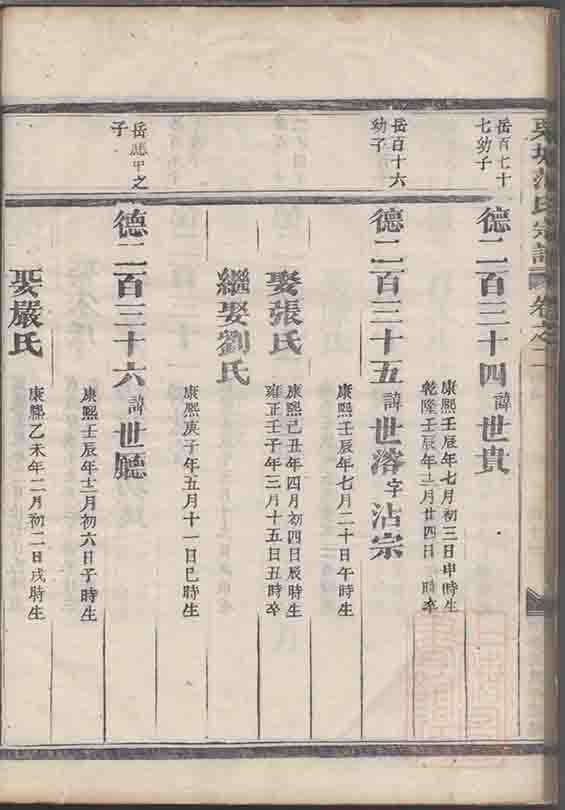 氏宗譜
卷之二
岳百七十
七幼子
德二百三十四 諱 世貴
康熙壬辰年七月初三日申時生
乾隆壬辰年十二月廿四日 時卒
岳百十六
幼子
德二百三十五 諱 世溶 字 沾宗
康熙壬辰年七月二十日午時生
娶張氏
康熙己丑年四月初四日辰時生
雍正壬子年三月十五日丑時卒
繼娶劉氏
康熙庚子年五月十一日巳時生
岳 甲之
子
德二百三十六 諱 世聽
康熙壬辰年十二月初六日子時生
娶嚴氏
康熙乙未年二月初二日戌時生